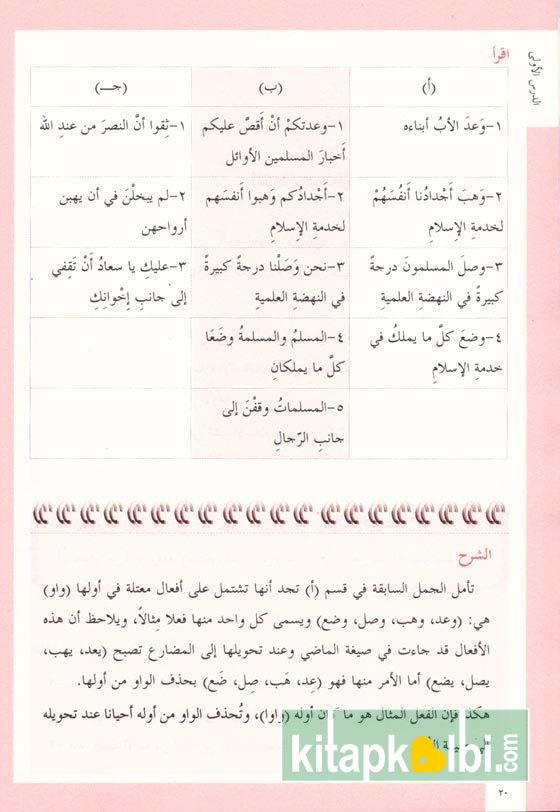 الدرس الأولى
اقرأ
(أ) (ب) (جـ)
١-وَعدَ الأبُ أبناءه ١-وعدتكمْ أنْ أَقصَّ عليكم ١-ثِقوا أنَّ النصرَ من عندِ الله
أَخبارَ المسلمين الأوائل
٢-وَهبَ أَجْدادُنا أَنفُسَهُمْ ٢-أَجْدادُكم وَهبوا أَنفسَهم ٢-لم يبخلْنَ في أن يهبن
لخدمةِ الإِسلامِ لخدمةِ الإِسلامِ أرواحهن
٣-وصلَ المسلمونَ درجةً ٣-نحن وَصَلْنا درجةً كبيرةً ٣-عليكِ يا سعادُ أنْ تَقِفي
كبيرةً في النهضةِ العلميةِ في النهضةِ العلميةِ إلى جانبِ إِخْوانِكِ
٤-وضعَ كلّ ما يملكُ في ٤-المسلمُ والمسلمةُ وضَعَا
خدمةِ الإِسلامِ كلّ ما يملكانِ
٥-المسلماتُ وقفْنَ إلى
جانبِ الرّجالِ
الشرح
تأمل الجمل السابقة في قسم (أ) تجد أنها تشتمل على أفعال معتلة في أولها (واو)
هي: (وعد، وهب، وصل، وضع) ويسمى كل واحد منها فعلا مِثالاً، ويلاحظ أن هذه
الأفعال قد جاءت في صيغة الماضي وعند تحويلها إلى المضارع تصبح (يعد، يهب،
يصل، يضع) أما الأمر منها فهو (عِد، هَب، صِل، ضَع) بحذف الواو من أولها.
هكذا فإن الفعل المثال هو ما كان أوله (واوا)، وتُحذف الواو من أوله أحيانا عند تحويله
kitapkalbi.com
٢٠